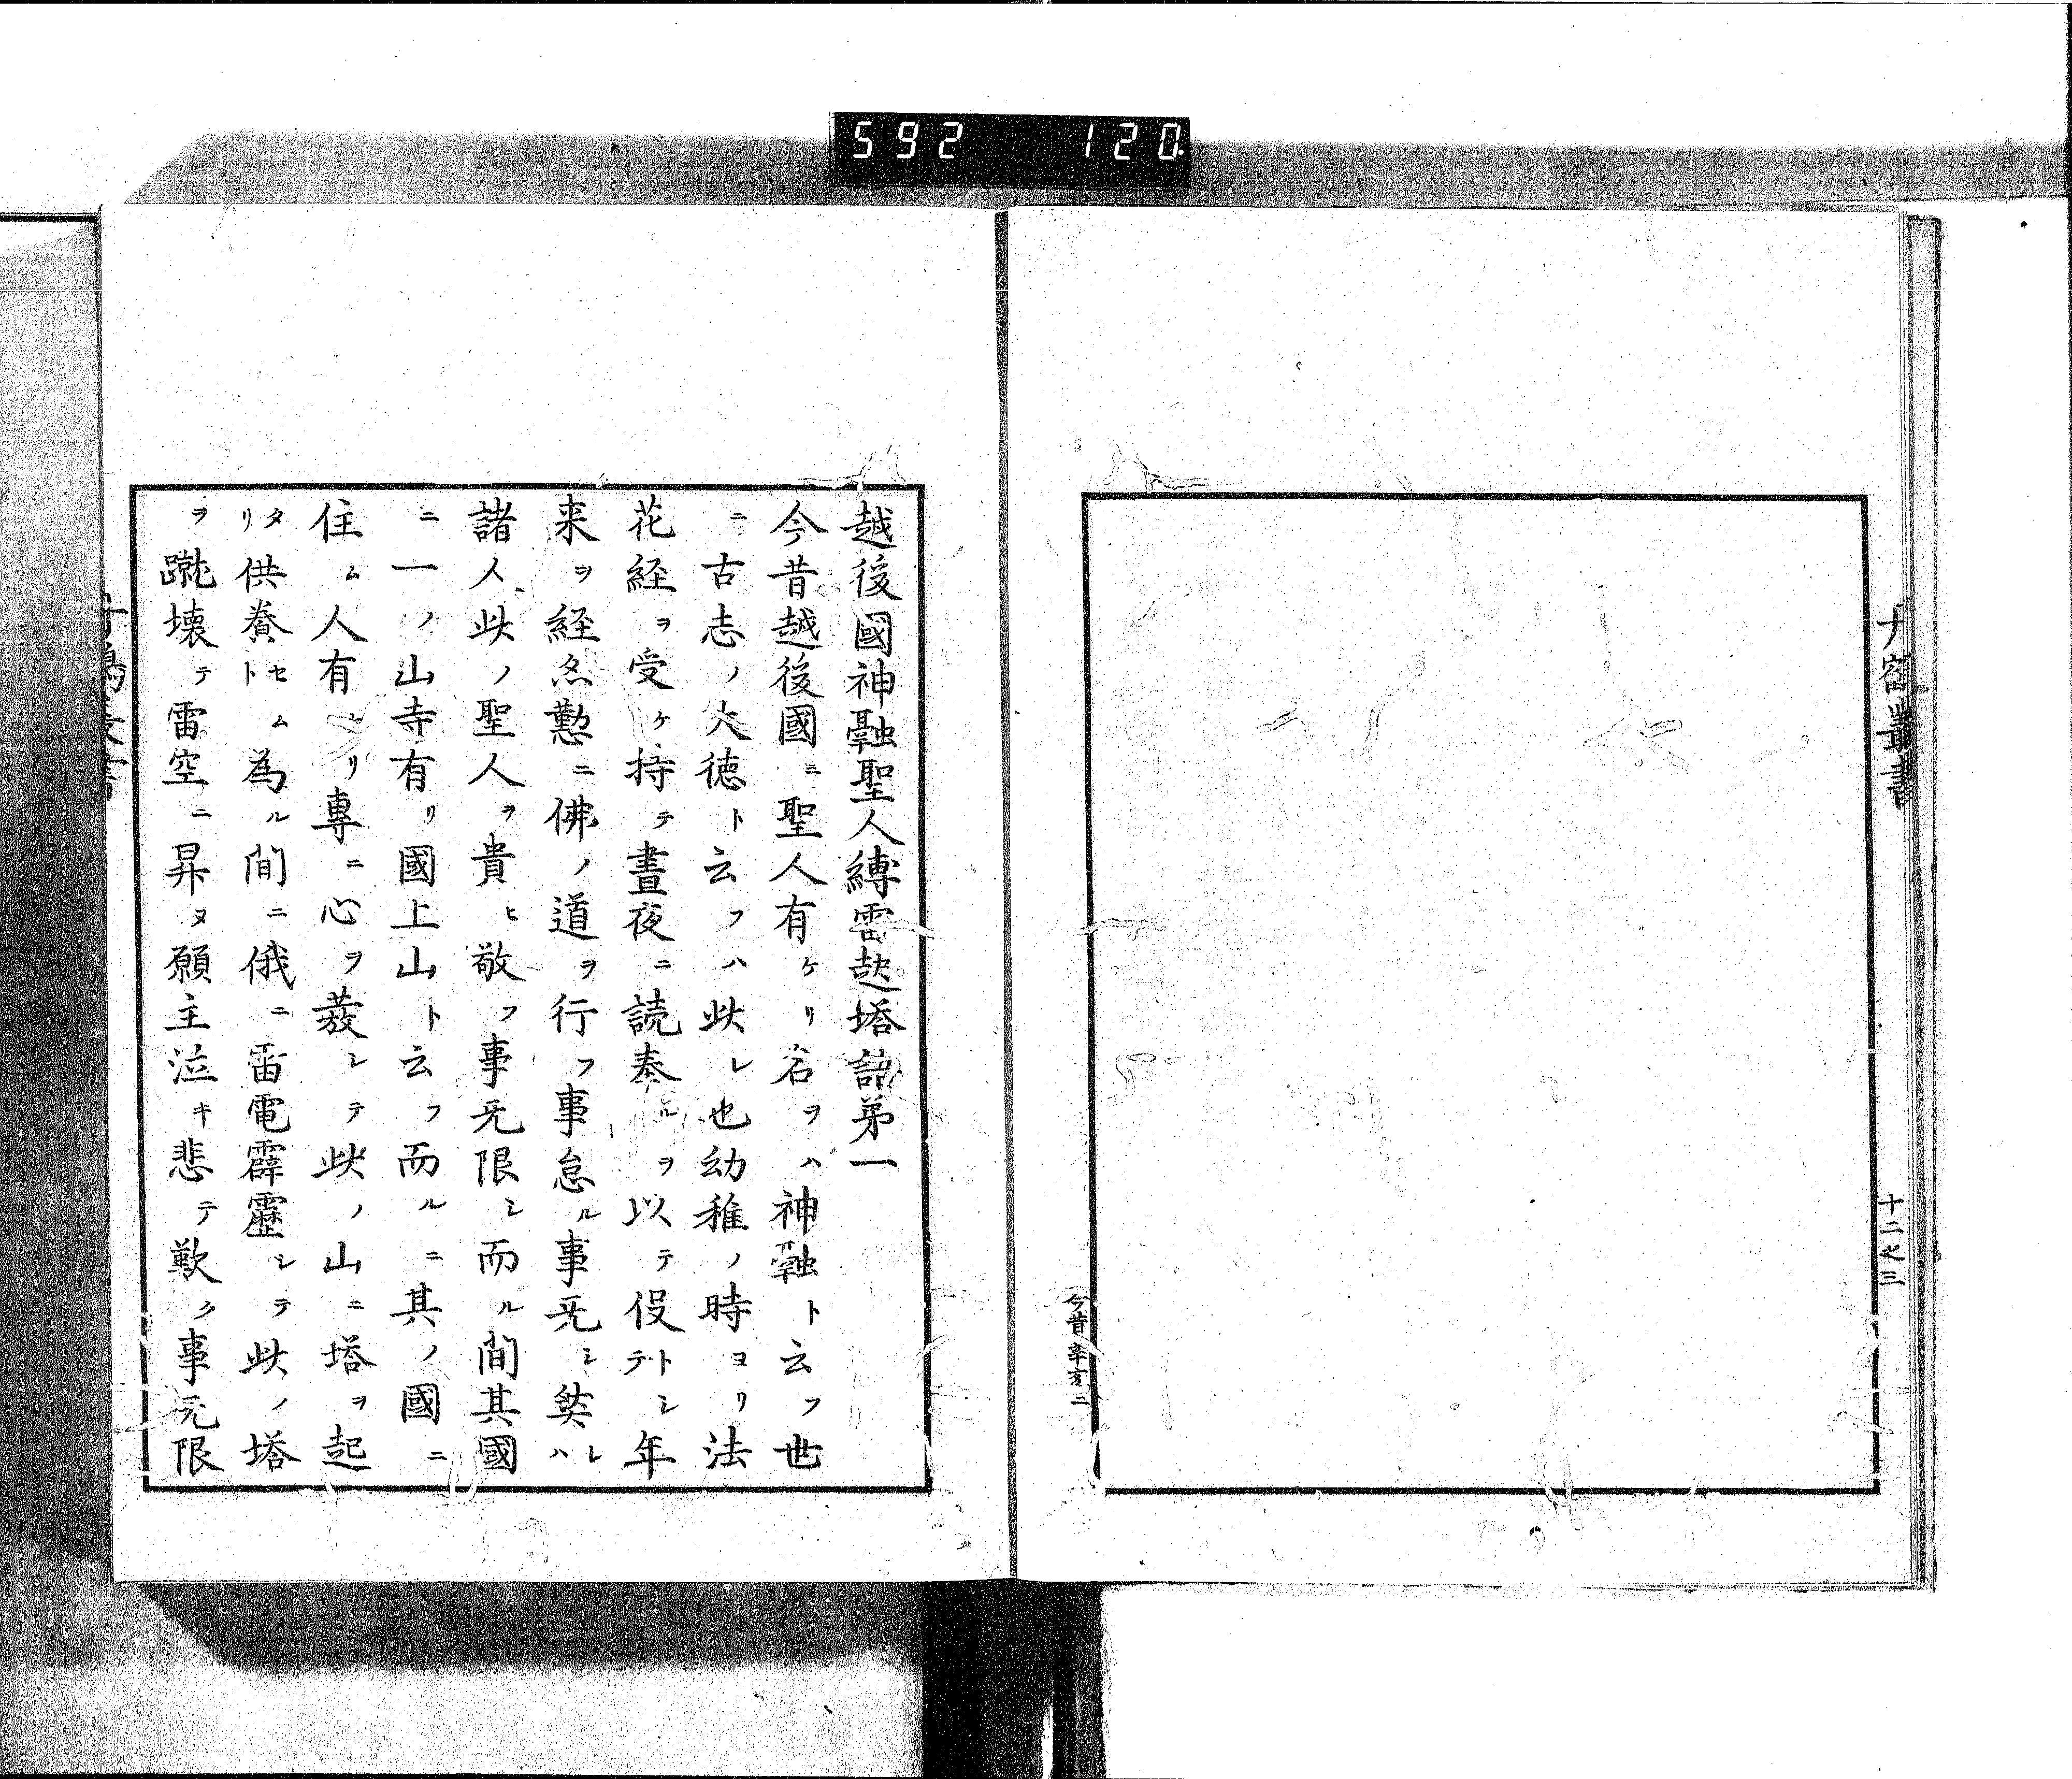 592 120
丹鶴叢書
十二之三
今昔辛亥二
越後國神融聖人縛雷起塔語第一
今昔越後國ニ聖人有ケリ名ヲハ神融ト云フ世
ニ古志ノ大徳ト云フハ此レ也幼稚ノ時ヨリ法
花経ヲ受ケ持テ晝夜ニ読奉ルヲ以テ役トシテ年
来ヲ経亦懃ニ佛ノ道ヲ行フ事怠ル事无シ然レハ
諸人此ノ聖人ヲ貴ヒ敬フ事无限シ而ル間其國
ニ一ノ山寺有リ國上山ト云フ而ルニ其ノ國ニ
住ム人有ケリ專ニ心ヲ發シテ此ノ山ニ塔ヲ起
タリ供養セムト為ル間ニ俄ニ雷電霹靂シテ此ノ塔
ヲ蹴壊テ雷空ニ昇ヌ願主泣キ悲テ歎ク事无限